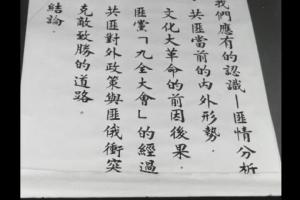 我們應有的認識—匪情分析
共匪當前的內外形勢．
文化大革命的前因後果．
匪黨「九全大會」的經過
共匪對外政策與匪俄衝突
克敵致勝的道路．
結論